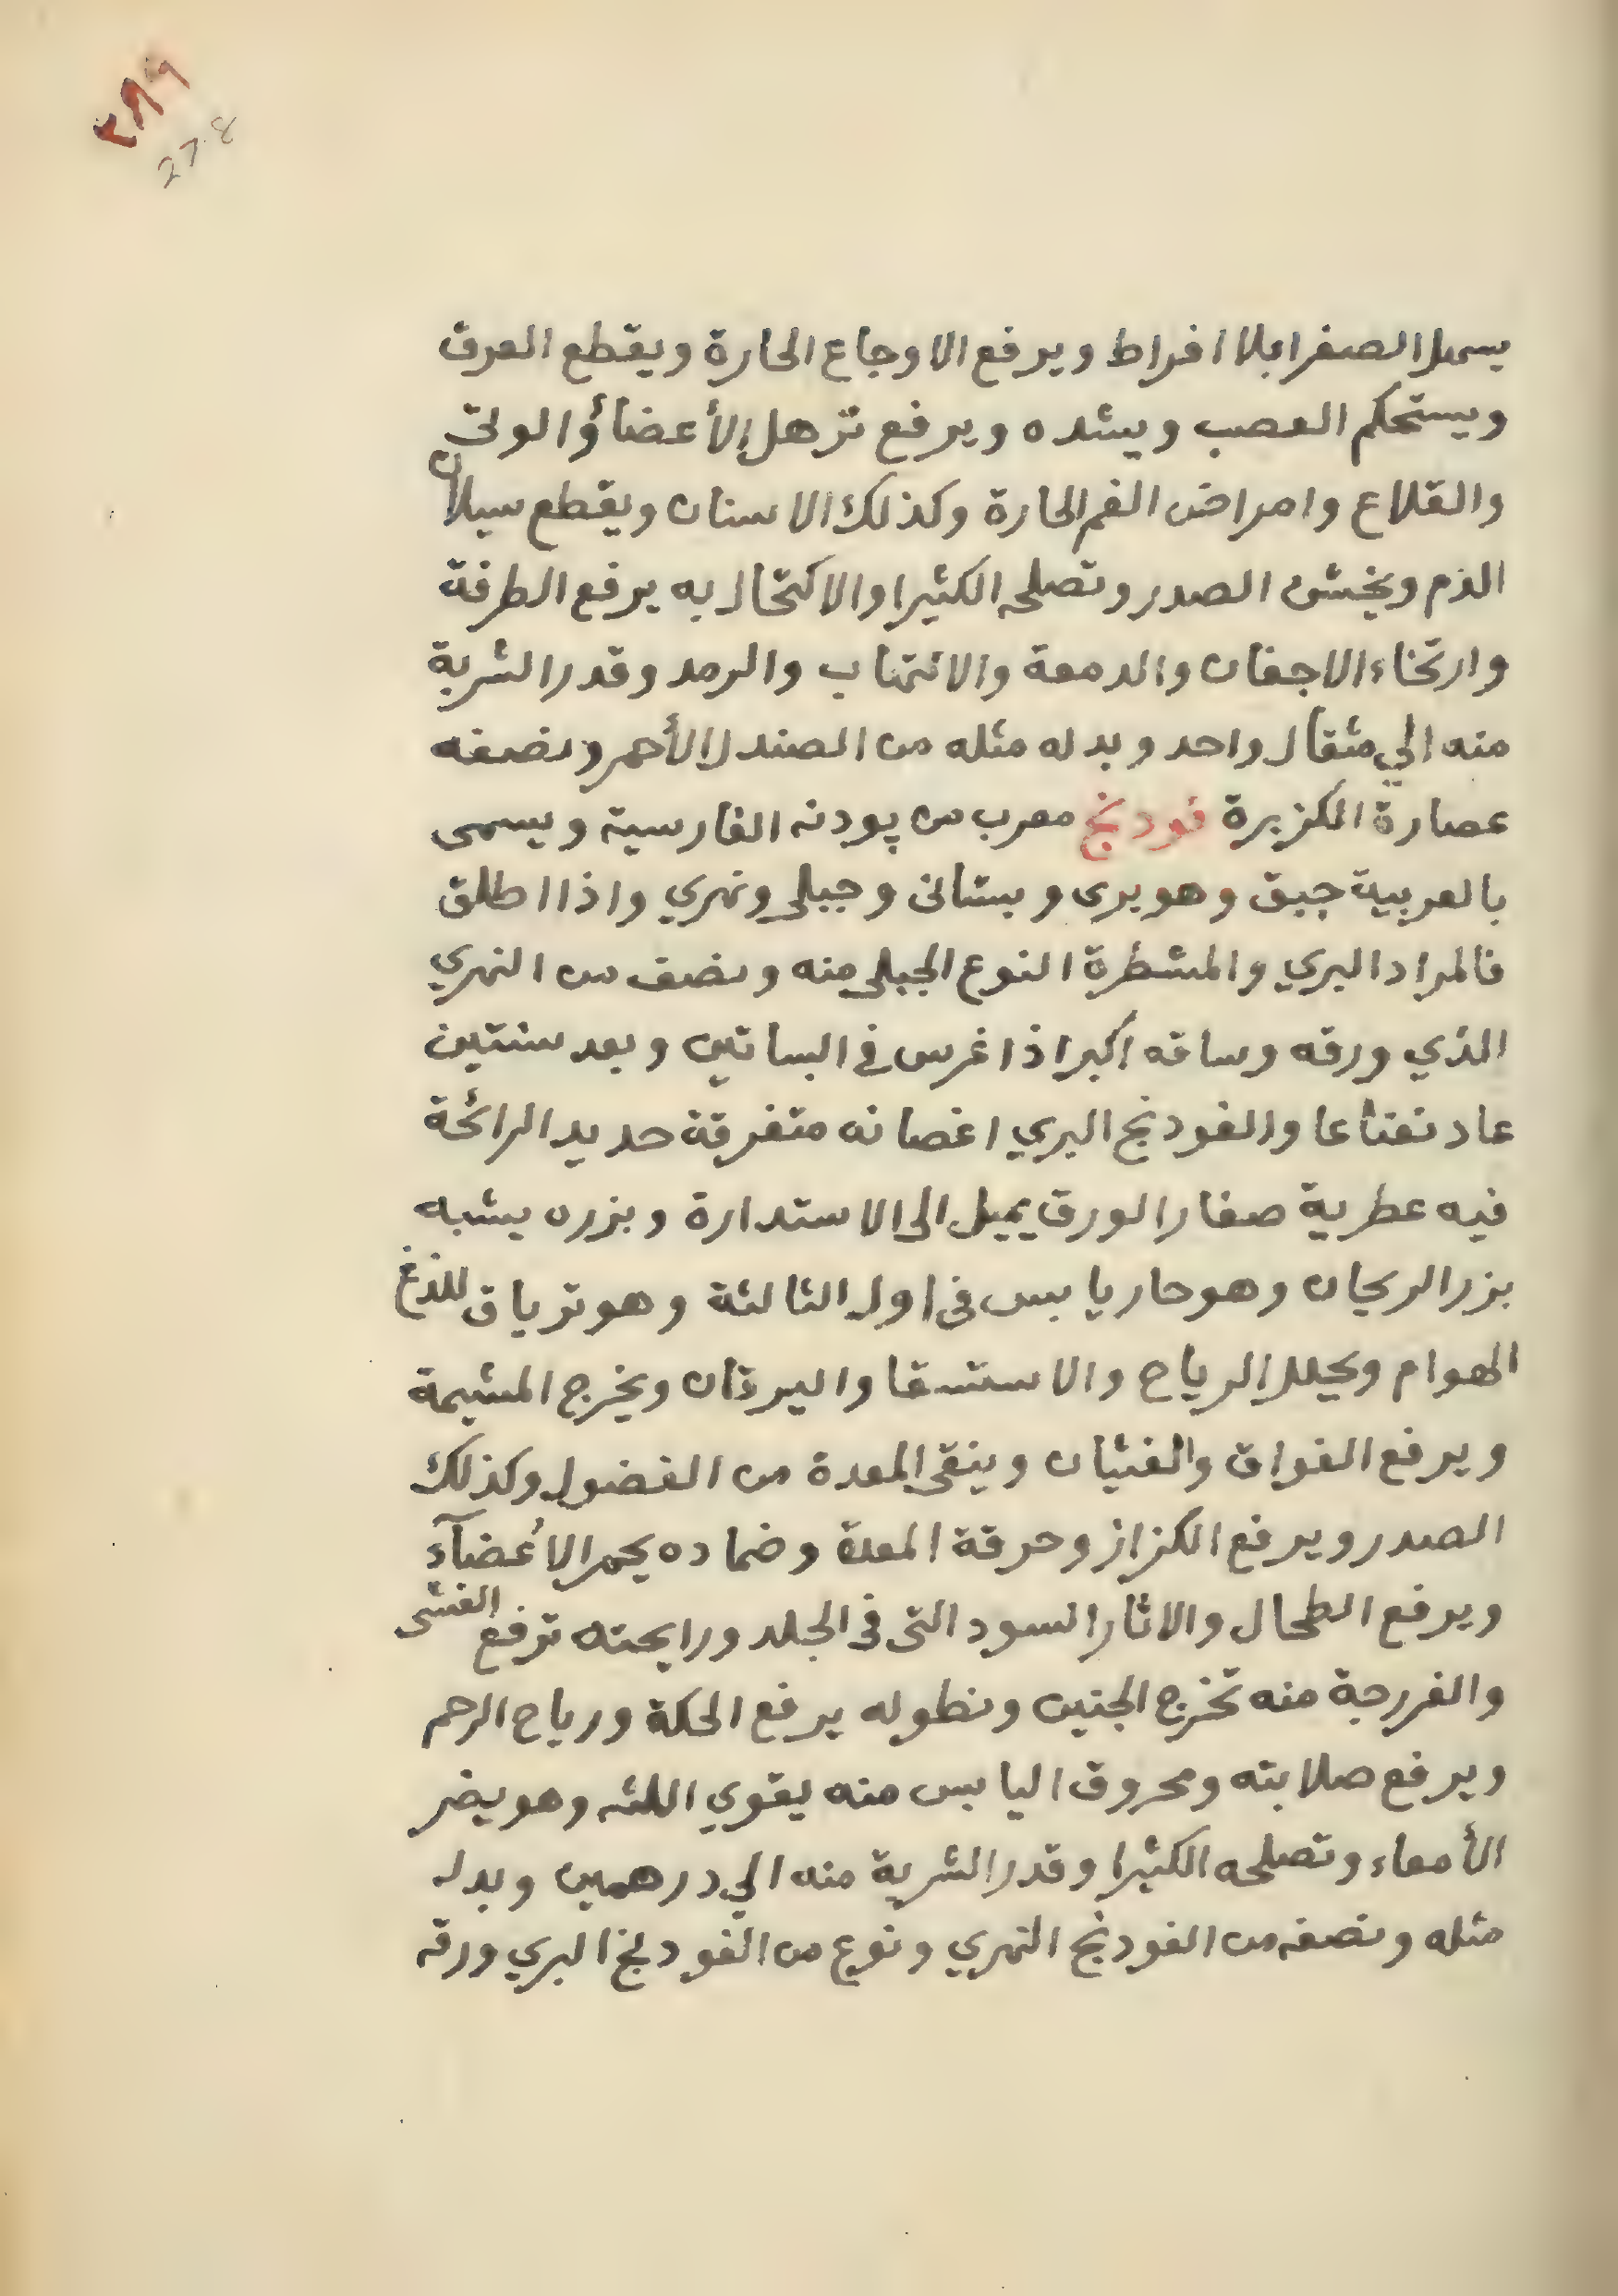 ٢٨٩
278
يسهل الصفرا بلا افراط ويرفع الاوجاع الحارة ويقطع العرق
ويستحكم العصب ويشده ويرفع ترهل الأعضاؤ الوثى
والقلاع وامراض الفم الحارة وكذلك الاسنان ويقطع سيلان
الدم ويخشن الصدر وتصلحه الكثيرا والاكتحال به يرفع الطرفة
وارتخاء الاجفان والدمعة والالتهاب والرمد وقدر الشربة
منه الي مثقال واحد وبدله مثله من الصندل الأحمر ونصفه
عصارة الكزبرة فودنج معرب من پودنه الفارسية ويسمى
بالعربية حبق وهو برى وبستانى وجبلي ونهري واذا اطلق
فالمراد البري والمشطرة النوع الجبلي منه ونصف من النهري
الذي ورقه وساقه اكبر اذا غرس في البساتين وبعد سنتين
عاد نعناعا والفودنج البري اغصانه متفرقة حديد الرائحة
فيه عطرية صغار الورق يميل الى الاستدارة وبزره يشبه
بزر الريحان وهو حار يابس في اول الثالثة وهو ترياق للذغ
الهوام ويحلل الرياح والاستسقا واليرقان ويخرج المشيمة
ويرفع الفواق والغثيان وينقى المعدة من الفضول وكذلك
الصدر ويرفع الكزاز وحرقة المعدة وضماده يحمر الأعضآء
ويرفع الطحال والاثار السود التى فى الجلد ورايحته ترفع الغشى
والفررجة منه تخرج الجنين ونطوله يرفع الحكة ورياح الرحم
ويرفع صلابته ومحروق اليابس منه يقوي اللثه وهو يضر
الأمعاء وتصلحه الكثيرا وقدر الشربة منه الي درهمين وبدله
مثله ونصفه من الفودنج النهري ونوع من الفودنج البري ورقه